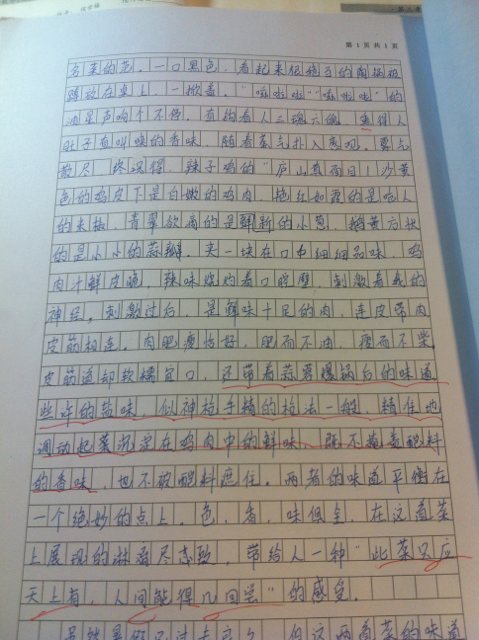 第1页共1页
务菜的范。一口黑色,看起来低矮了的陶锅被
蹲放在桌上,一掀盖,"嗞啦啦""嗞啦啦"的
油星声响个不停,直钩着人三魂六魄,惠得人
肚子直叫唤的香味,随着蒸气扑入鼻咽。雾气
散尽,终识得,辣子鸡的"庐山真面目!沙黄
色的鸡皮下是白嫩的鸡肉,艳红如霞的是呛人
的米椒,青翠欲滴的是鲜新的小葱,鹅黄方状
的是小小的蒜瓣,夹一块在口中细细品味,鸡
肉汁鲜皮脆,辣味烧灼着口腔壁,刺激着我的
神经。刺激过后,是鲜味十足的肉,连皮带肉
皮筋相连,肉肥瘦恰好,肥而不油,瘦而不柴
皮筋道却软糯宜口,还带着蒜蓉爆锅后的味道
些许的盐味,似神枪手精的枪法一般,精准地
调动起菜沉淀在鸡肉中的鲜味,既不掩盖配料
的香味,也不被配料遮住。两者的味道平衡在
一个绝妙的点上。色,香,味俱全,在这道菜
上展现的淋漓尽态致,带给人一种"此菜只应
天上有,人间能得几回尝"的感受。
这两道菜的味道